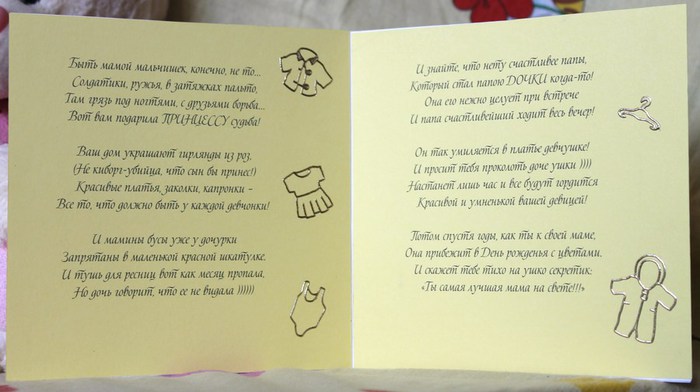 Быть мамой мальчишек, конечно, не то...
Солдатики, ружья, в затяжках пальто,
Там грязь под ногтями, с друзьями борьба...
Вот вам подарила ПРИНЦЕССУ судьба!
Ваш дом украшают гирлянды из роз,
(Не киборг-убийца, что сын бы принес!)
Красивые платья, заколки, капронки –
Все то, что должно быть у каждой девчонки!
И мамины бусы уже у дочурки
Запрятаны в маленькой красной шкатулке.
И тушь для ресниц вот как месяц пропала,
Но дочь говорит, что ее не видала ))))))
И знайте, что нету счастливее папы,
Который стал папою ДОЧКИ когда-то!
Она его нежно целует при встрече
И папа счастливейший ходит весь вечер!
Он так умиляется в платье девчушке!
И просит тебя проколоть доче ушки ))))
Настанет лишь час и все будут гордится
Красивой и умненькой вашей девицей!
Потом спустя годы, как ты к своей маме,
Она прибежит в День рожденья с цветами,
И скажет тебе тихо на ушко секретик:
«Ты самая лучшая мама на свете!!!»